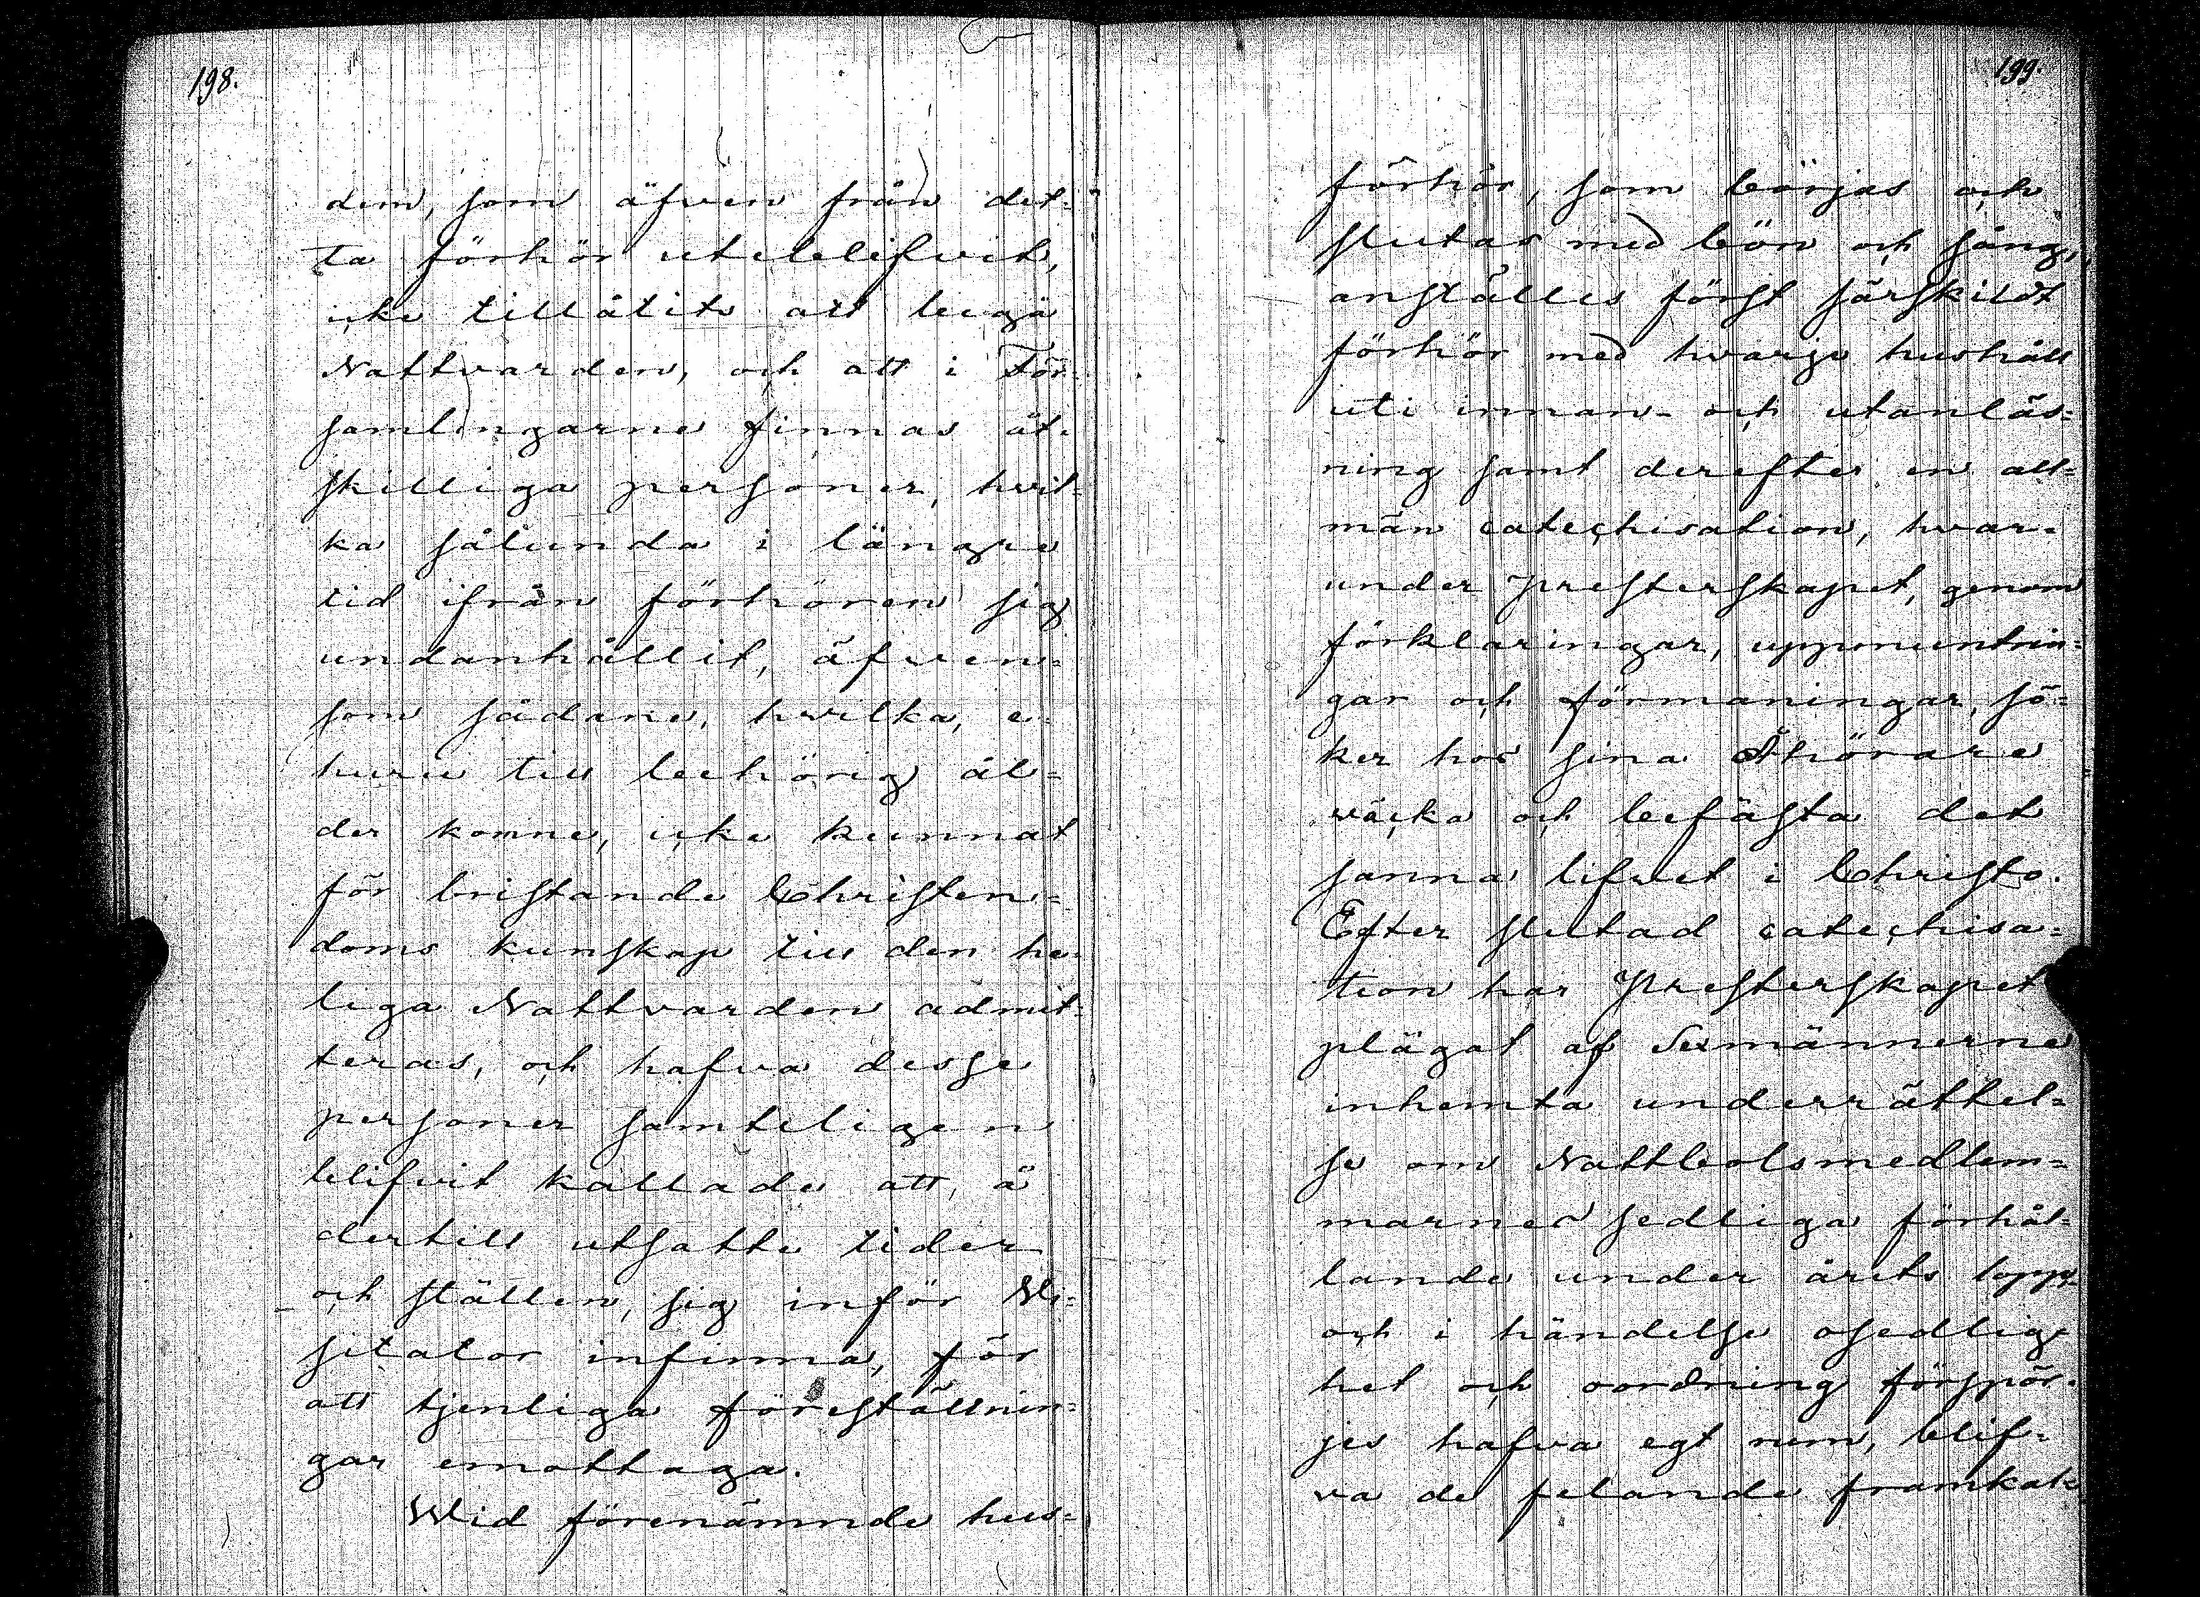 198.
dem, som äfven från det-
ta förhör uteblifvit,
icke tillåtits att begå
Nattvarden, och att i För-
samlingarne finnas åt-
skilliga personer, hvil-
ka sålunda i längre
tid ifrån förhören sig
undanhållit, äfven-
som sådane, hvilka, e-
huru till behörig ål-
der komne, icke kunnat
för bristande Christen-
doms kunskap till den he-
liga Nattvarden admit-
teras, och hafva desse
personer samteligen
blifvit kallade att, å
dertill utsatte tider
och ställen, sig inför Vi-
sitator infinna, för
att tjenliga föreställnin-
gar emottaga.
Wid förenämnde hus-
199.
förhör, som börjas och
slutas med bön och sång,
anställes först särskildt
förhör med hvarje hushåll
uti innan- och utanläs-
ning samt derefter en all-
män catechisation, hvar-
under Presterskapet, genom
förklaringar, uppmuntrin-
gar och förmaningar, sö-
ker hos sina Åhörare
väcka och befästa det
sanna lifvet i Christo.
Efter slutad catechisa-
tion har Presterskapet
plägat af Sexmännerne
inhemta underrättel-
se om Nattbolsmedlem-
marnes sedliga förhål-
lande under årets lopp
och i händelse osedlig-
het och oordning förspör-
jes hafva egt rum, blif-
va de felande framkal-